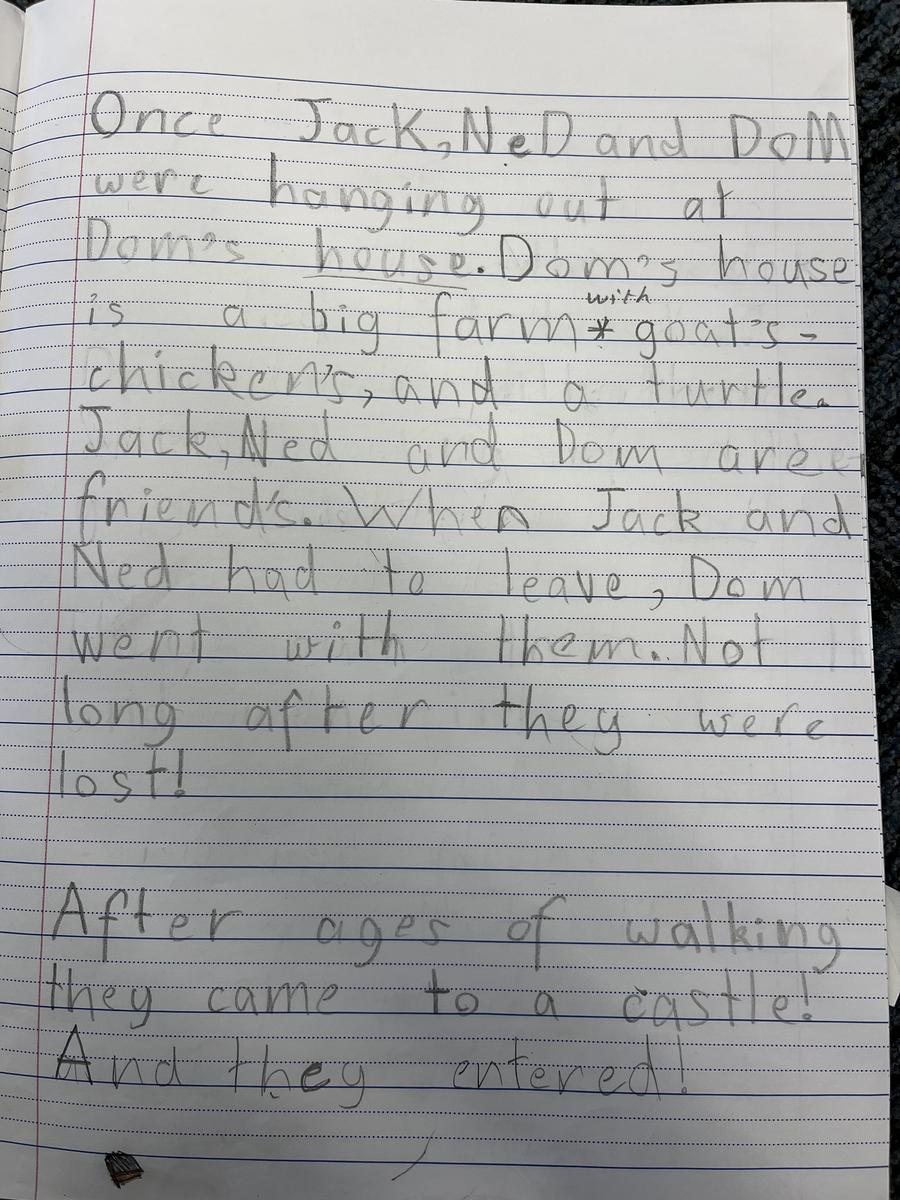 Once Jack, NeD and DoM
were hanging out at
Dom's house. Dom's house
is a big farm * with goat's -
chicken's, and a turtle.
Jack, Ned and Dom are
friend's. When Jack and
Ned had to leave, Dom
went with them. Not
long after they were
lost!
After ages of walking
they came to a castle!
And they entered!